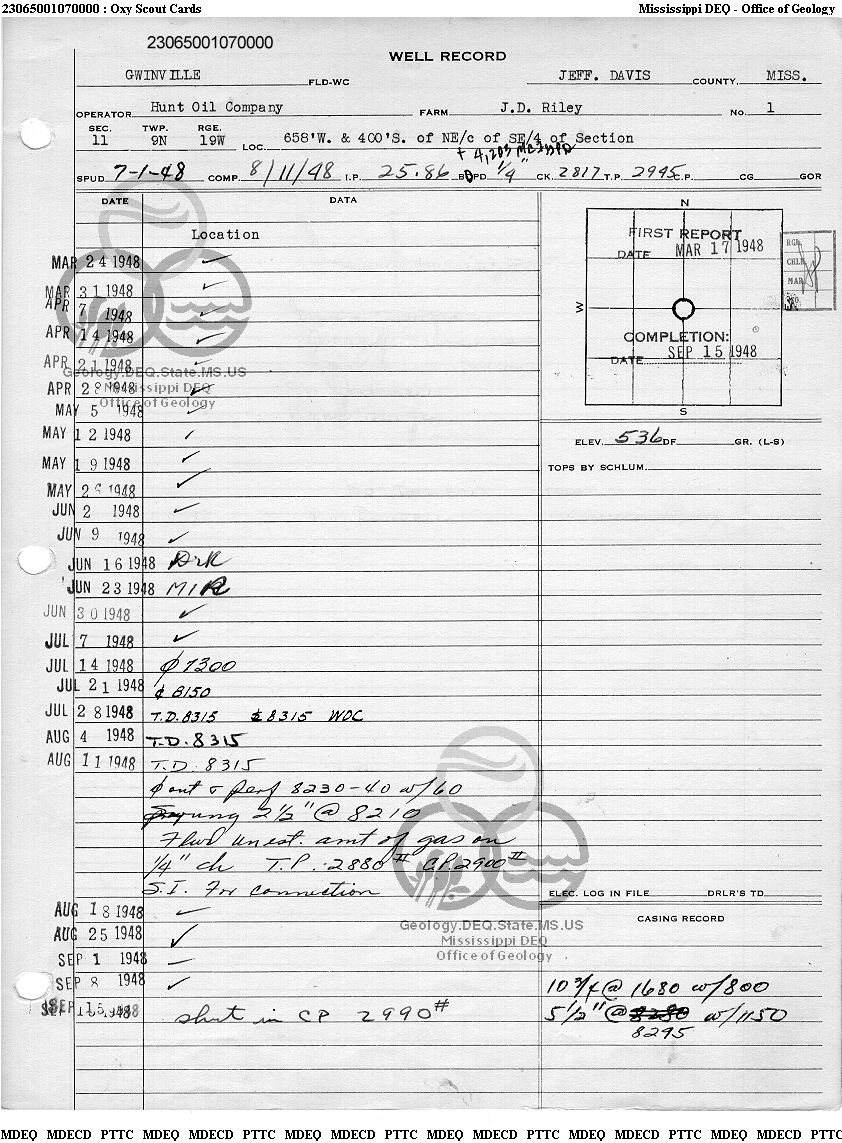 23065001070000 : Oxy Scout Cards Mississippi DEQ - Office of Geology
23065001070000
WELL RECORD
GWINVILLE FLD-WC JEFF. DAVIS COUNTY, MISS.
OPERATOR Hunt Oil Company FARM J.D. Riley No. 1
SEC. TWP. RGE.
11 9N 19W LOC. 658'W. & 400'S. of NE/c of SE/4 of Section
+ 4,203
SPUD 7-1-48 COMP. 8/11/48 I.P. 25.86 BOPD 1/4" CK. 2817 T.P. 2945 C.P. CG GOR
DATE DATA
Location
MAR 24 1948 ✓
MAR 31 1948 ✓
APR 7 1948 ✓
APR 14 1948 ✓
APR 21 1948 ✓
APR 28 1948 ✓
MAY 5 1948 ✓
MAY 12 1948 ✓
MAY 19 1948 ✓
MAY 26 1948 ✓
JUN 2 1948 ✓
JUN 9 1948 ✓
JUN 16 1948
JUN 23 1948 MIR
JUN 30 1948 ✓
JUL 7 1948 ✓
JUL 14 1948 ¢ 7300
JUL 21 1948 ¢ 8150
JUL 28 1948 T.D. 8315 ¢ 8315 WOC
AUG 4 1948 T.D. 8315
AUG 11 1948 T.D. 8315
¢ out & Perf 8230-40 w/60
swung 2½" @ 8210
Flwd unest. amt of gas on
1/4" ch T.P. 2880# C.P. 2900#
S.I. For connection
AUG 18 1948 ✓
AUG 25 1948 ✓
SEP 1 1948 ✓
SEP 8 1948 ✓
SEP 15 1948 shut in CP 2990#
N
W
S
FIRST REPORT
DATE MAR 17 1948
COMPLETION:
DATE SEP 15 1948
RGE.
CHLR.
MAP
ELEV. 536 DF GR. (L-S)
TOPS BY SCHLUM.
ELEC. LOG IN FILE DRLR'S TD
CASING RECORD
10 3/4 @ 1680 w/800
5 1/2" @ 8280 w/1150
8295
Geology.DEQ.State.MS.US
Mississippi DEQ
Office of Geology
Geology.DEQ.State.MS.US
Mississippi DEQ
Office of Geology
MDEQ MDECD PTTC MDEQ MDECD PTTC MDEQ MDECD PTTC MDEQ MDECD PTTC MDEQ MDECD PTTC MDEQ MDECD PTTC